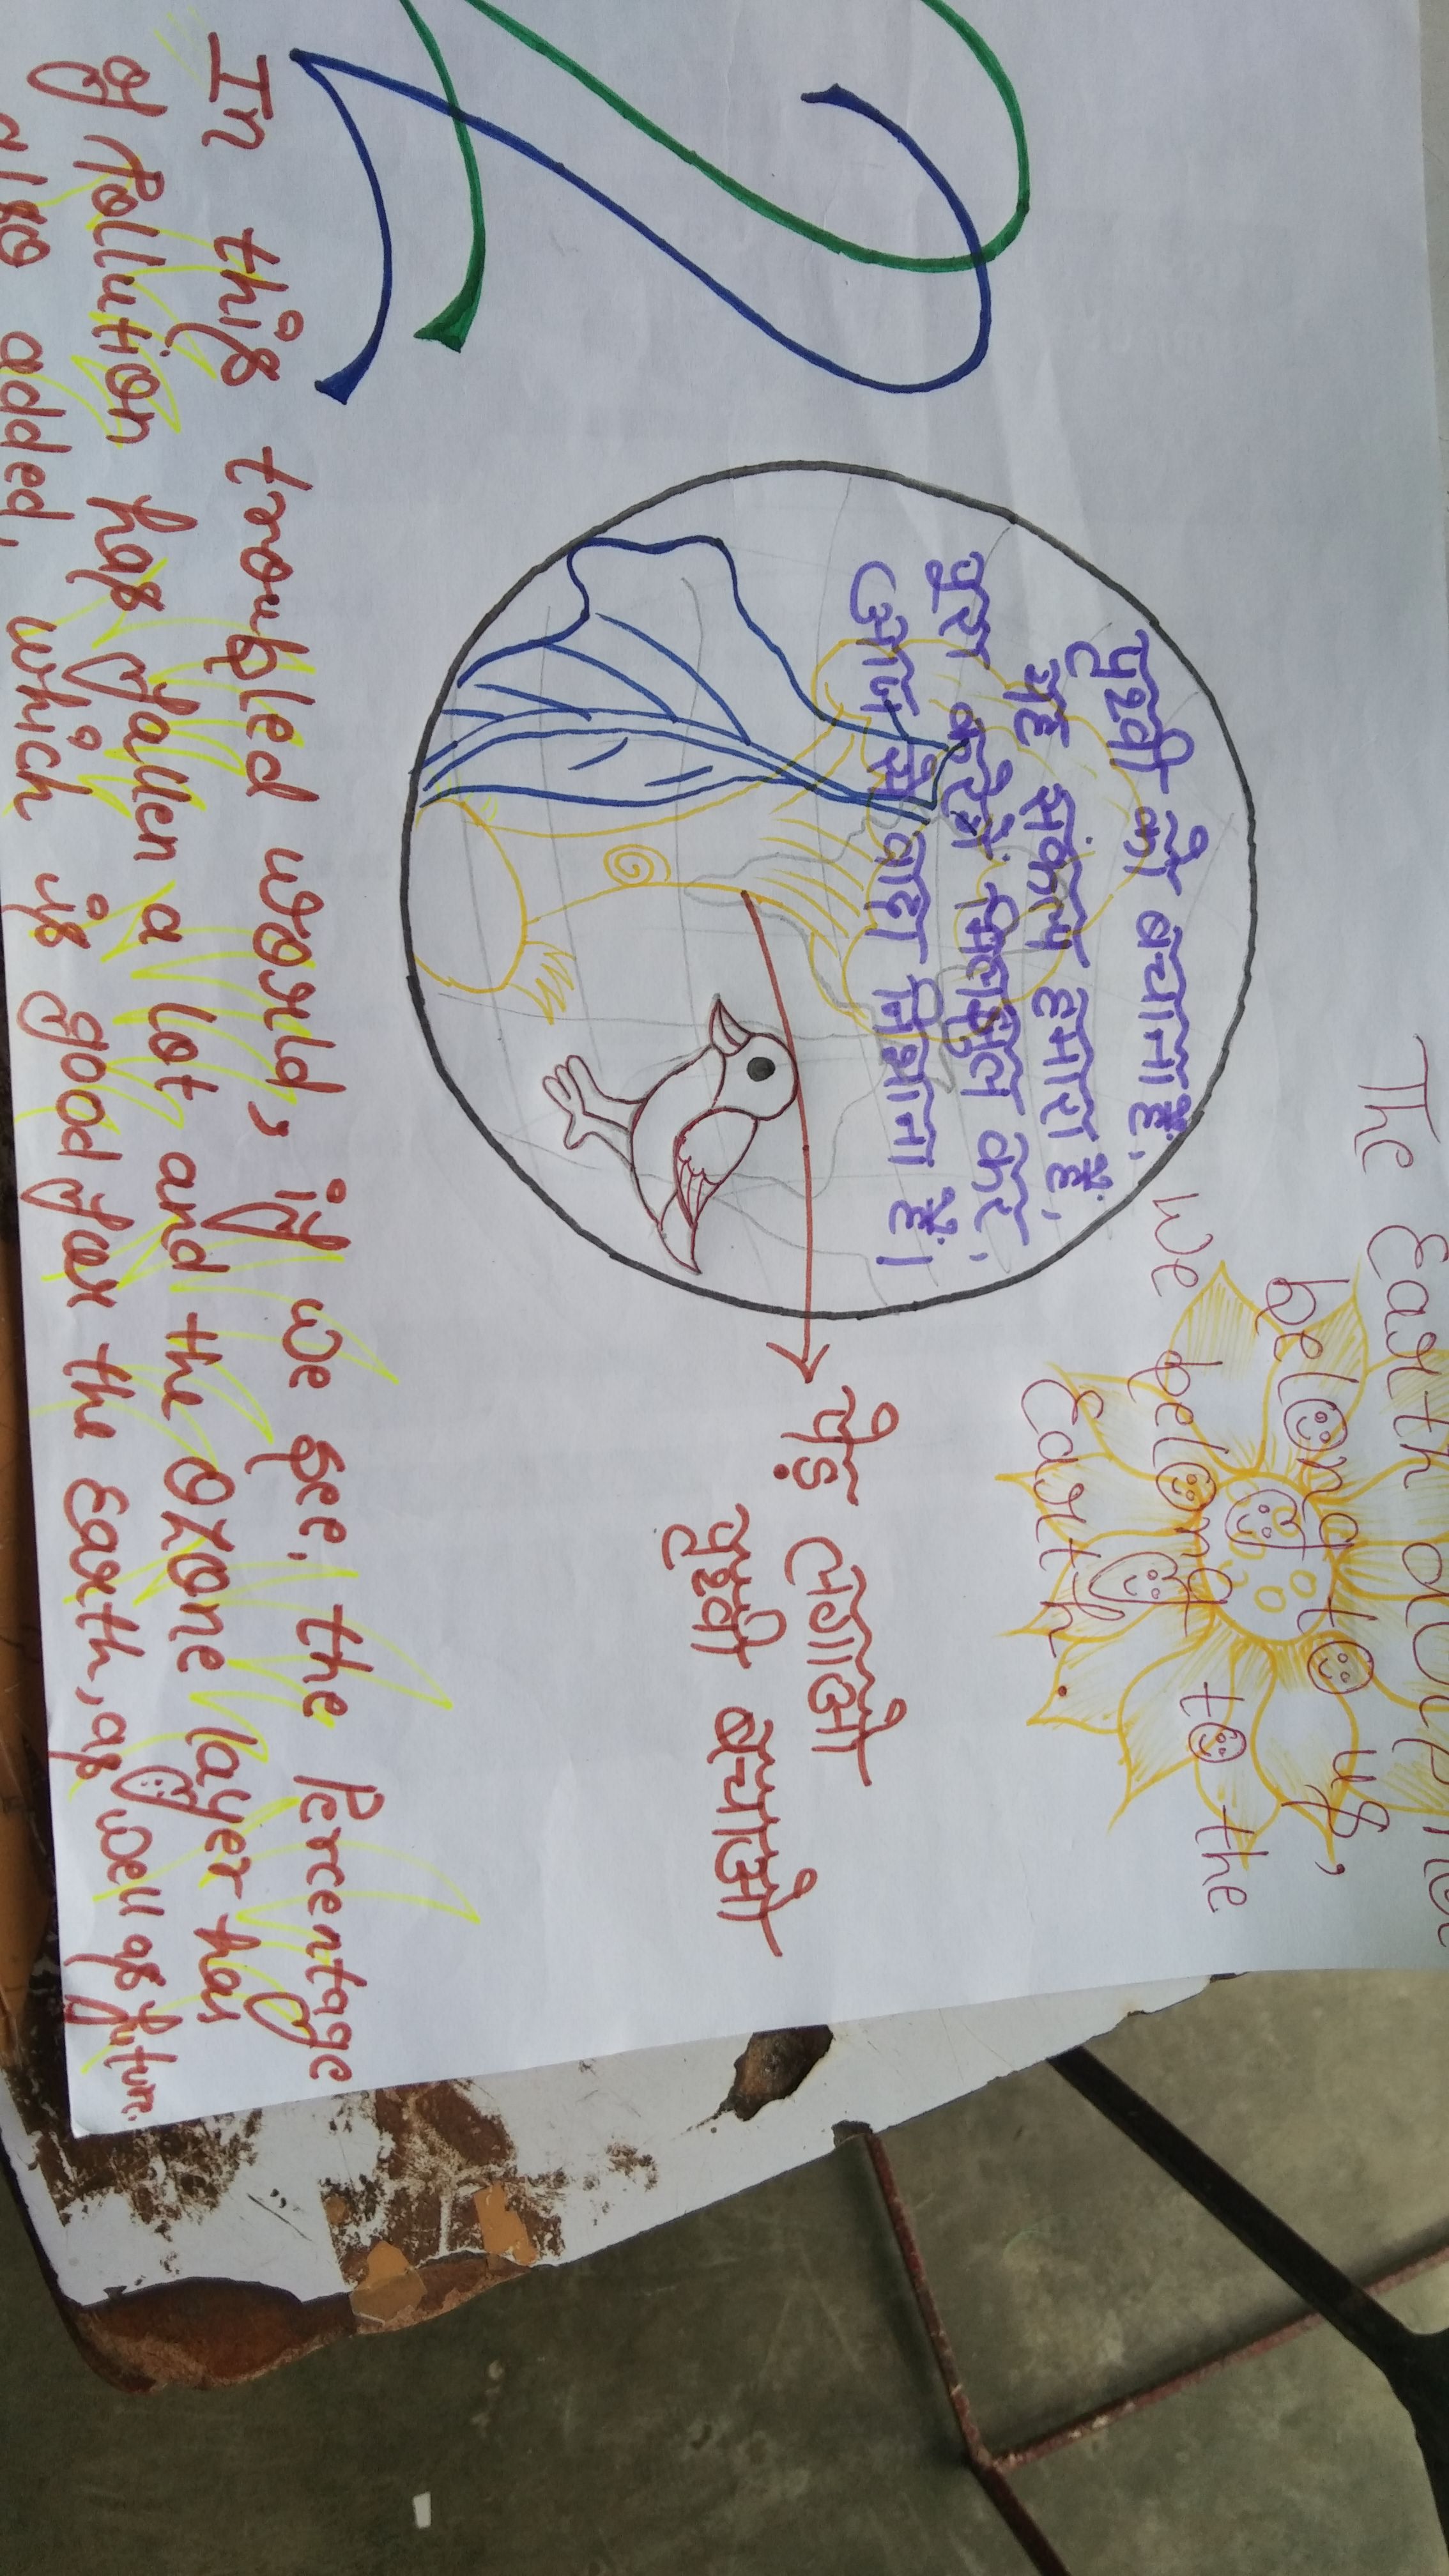 The Earth
belong to us,
we belong to the
Earth.
पृथ्वी को बचाना हैं,
यह संकल्प हमारा हैं,
पुरा करेंगे मिलझुल कर,
आज से वादा निभाना हैं।
पेड़ लगाओ
पृथ्वी बचाओ
In this troubled world, if we see, the Percentage
of Pollution has fallen a lot and the Ozone layer has
also added, which is good for the Earth, as well as futur.